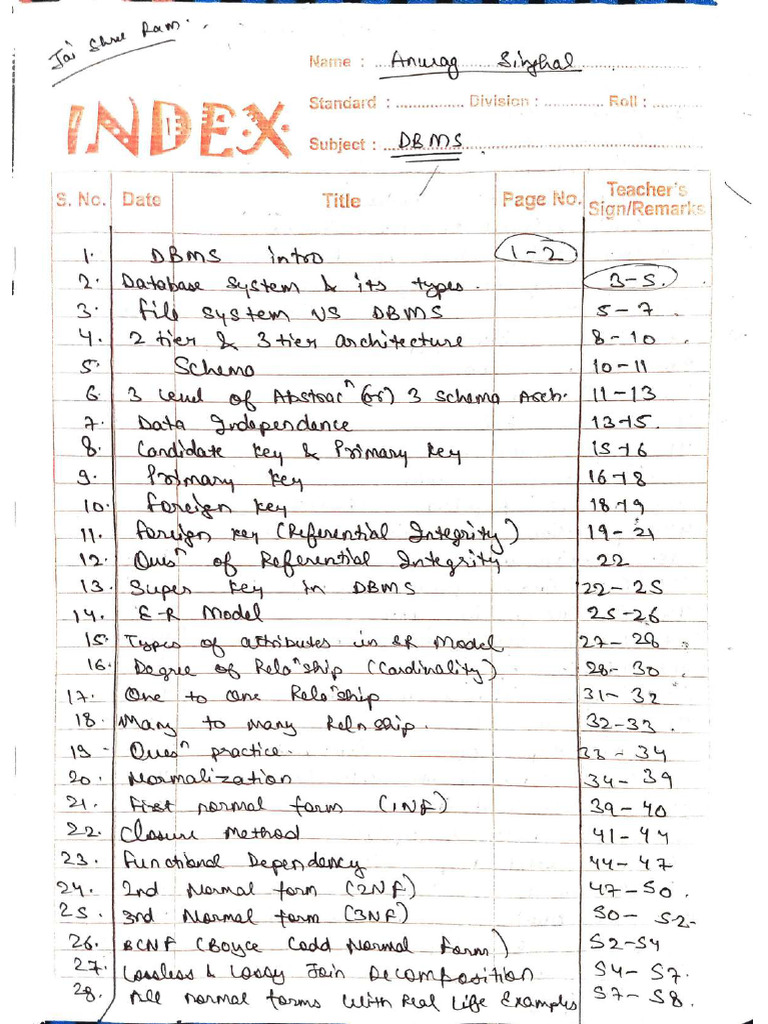 Jai Shree Ram.
Name : Anurag Singhal
Standard : Division : Roll :
INDEX
Subject : DBMS
S. No. Date Title Page No. Teacher's Sign/Remarks
1. DBMS intro 1-2
2. Database system & its types. 3-5.
3. File system VS DBMS 5-7
4. 2 tier & 3 tier architecture 8-10
5. Schema 10-11
6. 3 level of Abstracⁿ (or) 3 Schema Arch. 11-13
7. Data Independence 13-15.
8. Candidate key & Primary key 15-16
9. Primary key 16-18
10. Foreign key 18-19
11. Foreign key (Referential Integrity) 19-21
12. Quesⁿ of Referential Integrity 22
13. Super key in DBMS 22-25
14. E-R Model 25-26
15. Types of attributes in ER Model 27-28
16. Degree of Relaⁿship (Cardinality) 28-30
17. One to One Relaⁿship 31-32
18. Many to Many Relnship. 32-33.
19 - Quesⁿ practice. 33-34
20. Normalization 34-39
21. First normal form (1NF) 39-40
22. Closure Method 41-44
23. Functional Dependency 44-47
24. 2nd Normal form (2NF) 47-50.
25. 3rd Normal form (3NF) 50-52-
26. BCNF (Boyce Codd Normal Form) 52-54
27. Lossless & Lossy Join Decomposition 54-57.
28. All normal forms with Real Life Examples 57-58.